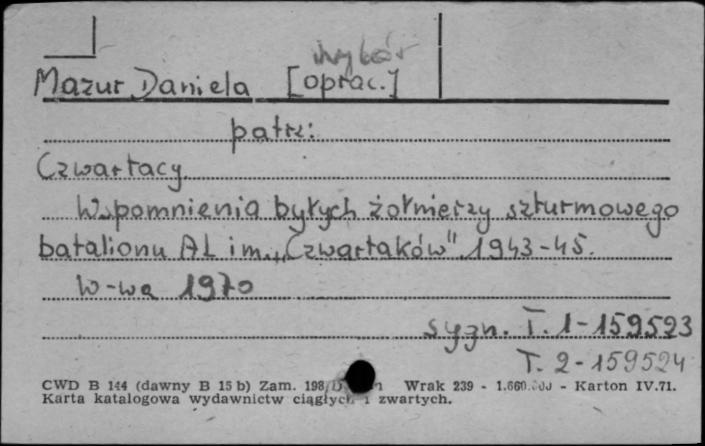 wybór
Mazur Daniela [oprac.]
patrz:
Czwartacy
Wspomnienia byłych żołnierzy szturmowego
batalionu AL im. „Czwartaków" 1943-45.
W-wa 1970
sygn. T. 1-159523
T. 2-159524
CWD B 144 (dawny B 15 b) Zam. 198 Wrak 239 - 1.660.000 - Karton IV.71.
Karta katalogowa wydawnictw ciągłych i zwartych.